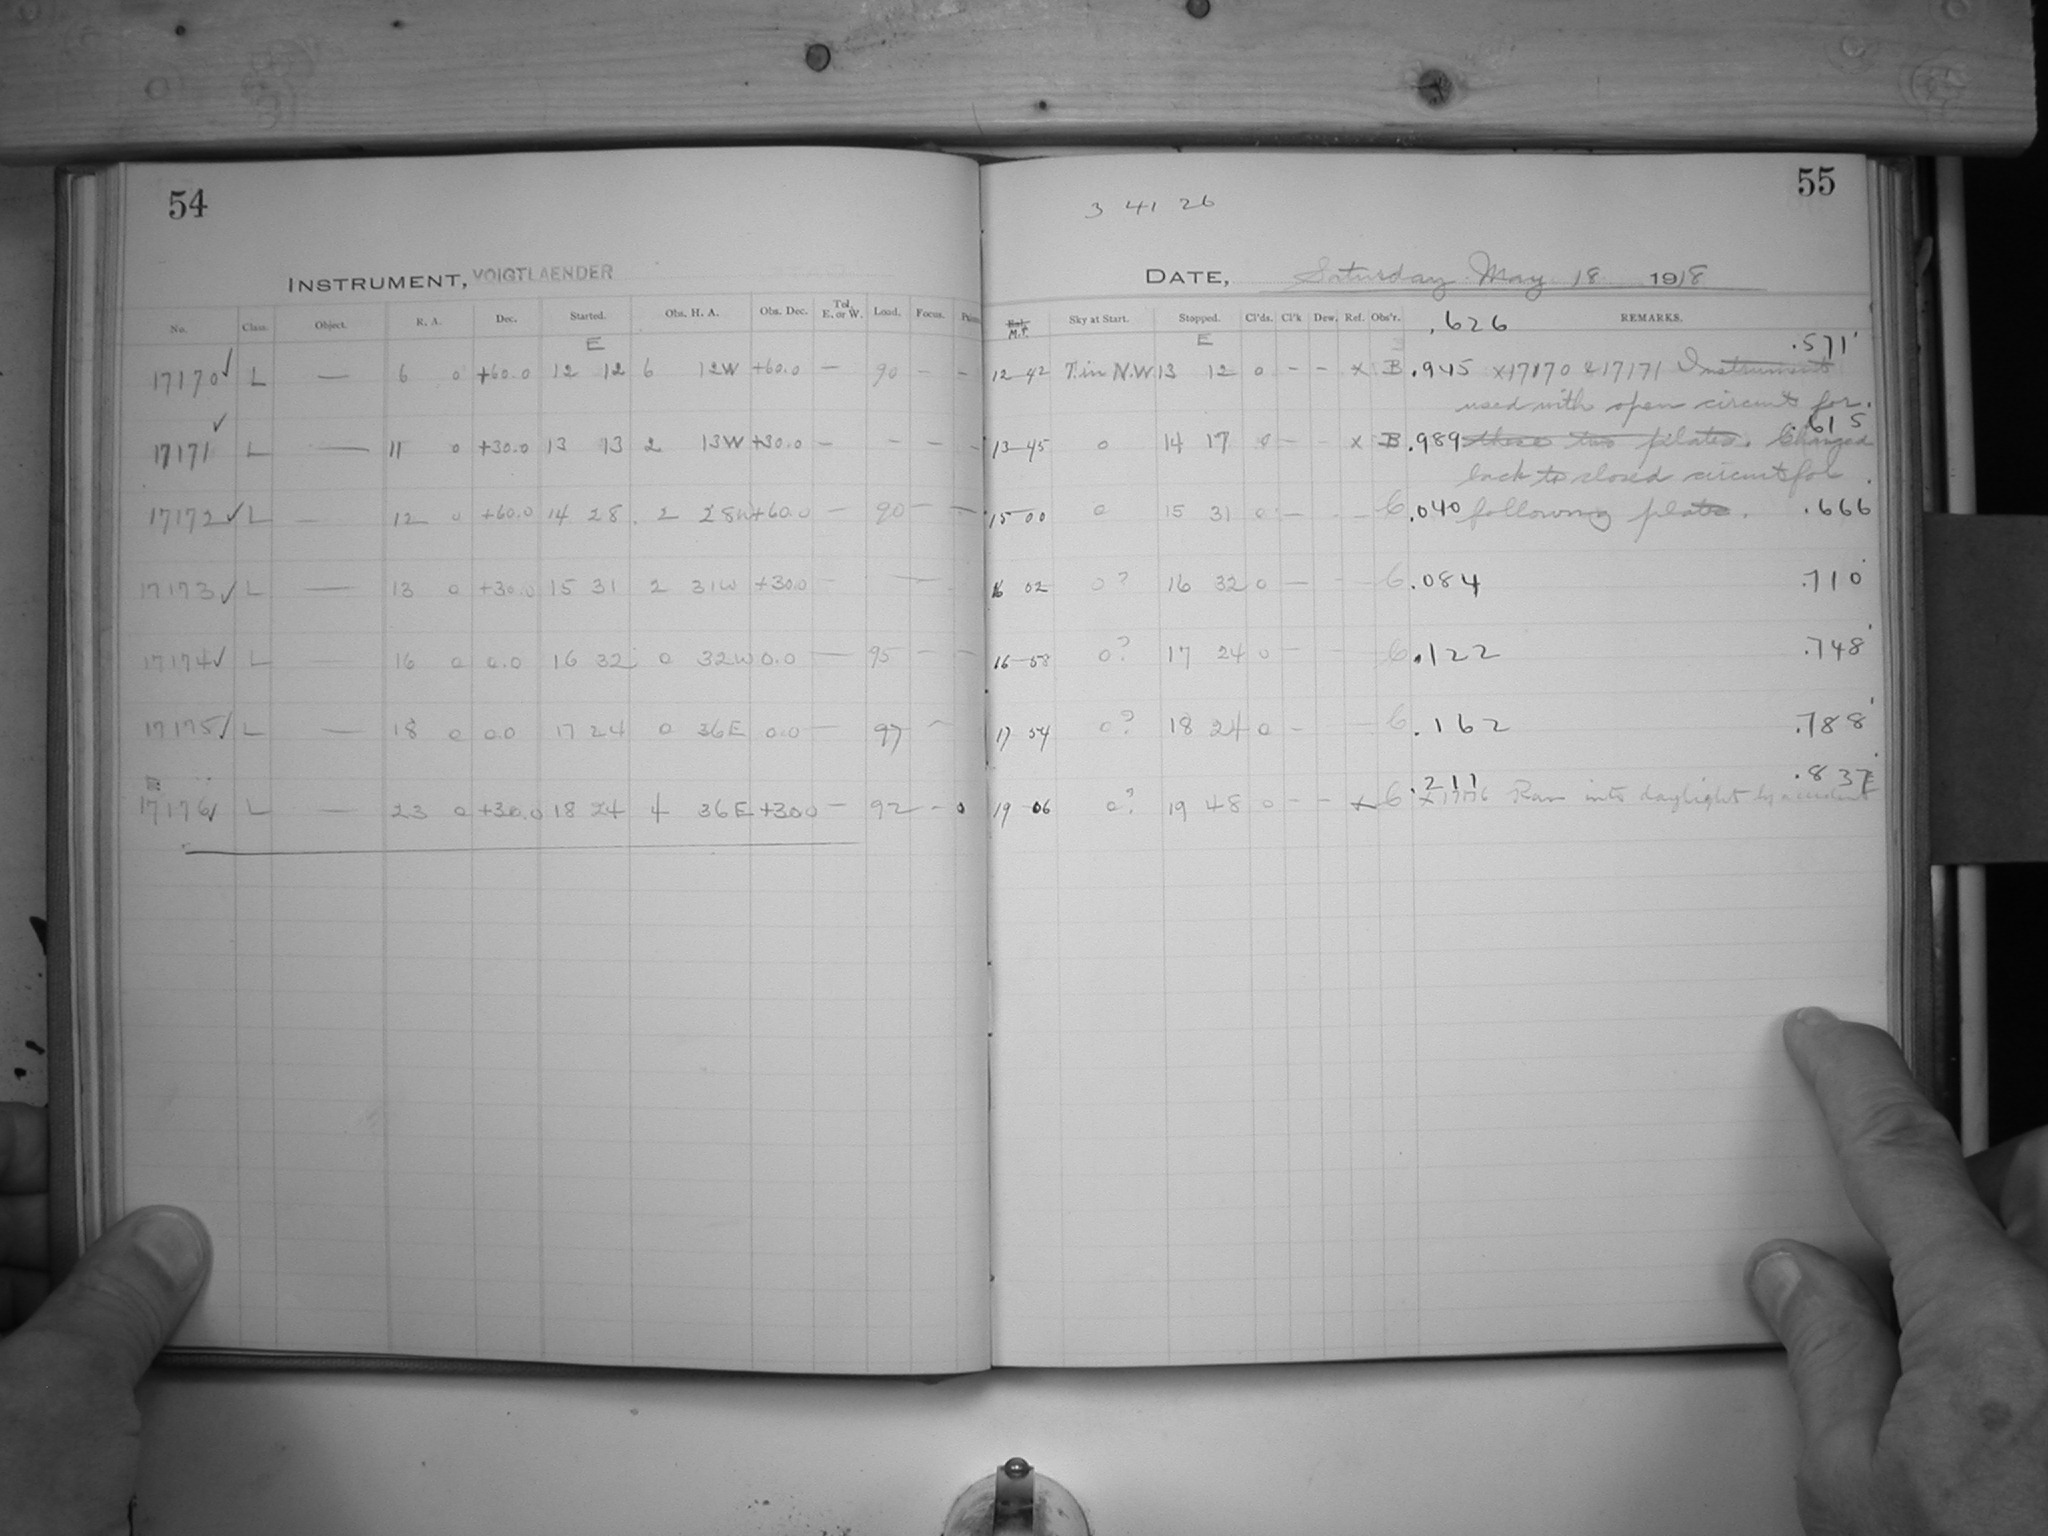 54
INSTRUMENT, VOIGTLAENDER
No. Class. Object. R. A. Dec. Started. Obs. H. A. Obs. Dec. Tel. E. or W. Load. Focus.
E
17170 ✓ L — 6 0 +60.0 12 12 6 12W +60.0 — 90 — –
17171 ✓ L — 11 0 +30.0 13 13 2 13W +30.0 — — — –
17172 ✓ L — 12 0 +60.0 14 28 2 28W +60.0 — 90 — —
17173 ✓ L — 13 0 +30.0 15 31 2 31W +30.0 — —
17174 ✓ L — 16 0 0.0 16 32 0 32W 0.0 — 95 — –
17175 ✓ L — 18 0 0.0 17 24 0 36E 0.0 — 97 —
17176 ✓ L — 23 0 +30.0 18 24 4 36E +30.0 — 92 - 0
55
3 41 26
DATE, Saturday May 18 1918
M.T. Sky at Start. Stopped. Cl'ds. Cl'k Dew. Ref. Obs'r. .626 REMARKS.
E .571
12-42 T. in N.W. 13 12 0 – – x B .945 x17170 & 17171 Instrument
used with open circuit for
.615
13-45 0 14 17 0 – – x B .989 these two plates. Changed
back to closed circuit for
15 00 0 15 31 0 – – – C .040 following plate. .666
16 02 0? 16 32 0 — – – C .084 .710
16-58 0? 17 24 0 – – – C .122 .748
17 54 0? 18 24 0 – – C .162 .788
.211 .837
19-06 0? 19 48 0 – – x C x17176 Ran into daylight by accident